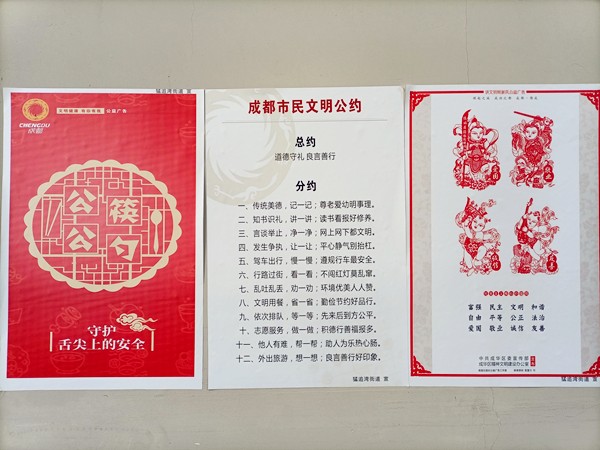 猛追湾街道 宣
CHENGDU
成都
文明健康 有你有我 公益广告
公筷
公勺
守护
舌尖上的安全
成都市民文明公约
总约
道德守礼 良言善行
分约
一、传统美德，记一记；尊老爱幼明事理。
二、知书识礼，讲一讲；读书看报好修养。
三、言谈举止，净一净；网上网下都文明。
四、发生争执，让一让；平心静气别抬杠。
五、驾车出行，慢一慢；遵规行车最安全。
六、行路过街，看一看；不闯红灯莫乱窜。
七、乱吐乱丢，劝一劝；环境优美人人赞。
八、文明用餐，省一省；勤俭节约好品行。
九、依次排队，等一等；先来后到方公平。
十、志愿服务，做一做；积德行善福报多。
十一、他人有难，帮一帮；助人为乐热心肠。
十二、外出旅游，想一想；良言善行好印象。
猛追湾街道 宣
爱国
敬业
诚信
友善
富强 民主 文明 和谐
自由 平等 公正 法治
爱国 敬业 诚信 友善
中共成华区委宣传部
成华区精神文明建设办公室
宣
猛追湾街道 宣